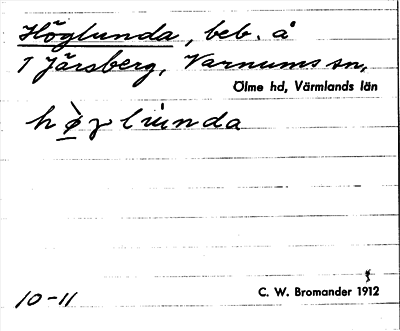 Höglunda, beb. å
1 Järsberg, Varnums sn,
Ölme hd, Värmlands län
hø̀glùnda
10-11
C. W. Bromander 1912